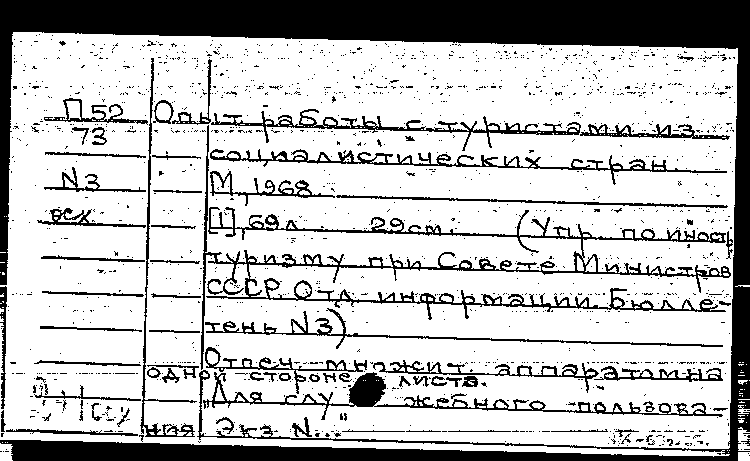 П52
73
N3
Опыт работы с туристами из
социалистических стран.
М., 1968.
[1], 69л. 29см. (Упр. по иностр.
туризму при Совете Министров
СССР. Отд. информации. Бюлле-
тень N3).
Отпеч. множит. аппаратом на
одной стороне листа.
"Для служебного пользова-
ния Экз N..."